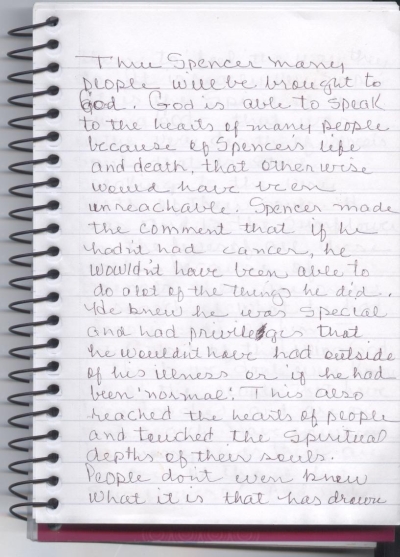 Thru Spencer many
people will be brought to
God. God is able to speak
to the hearts of many people
because of Spencer's life
and death, that otherwise
would have been
unreachable. Spencer made
the comment that if he
hadn't had cancer, he
wouldn't have been able to
do alot of the things he did.
He knew he was special
and had privileges that
he wouldn't have had outside
of his illness or if he had
been 'normal'. This also
reached the hearts of people
and touched the spiritual
depths of their souls.
People don't even know
what it is that has drawn